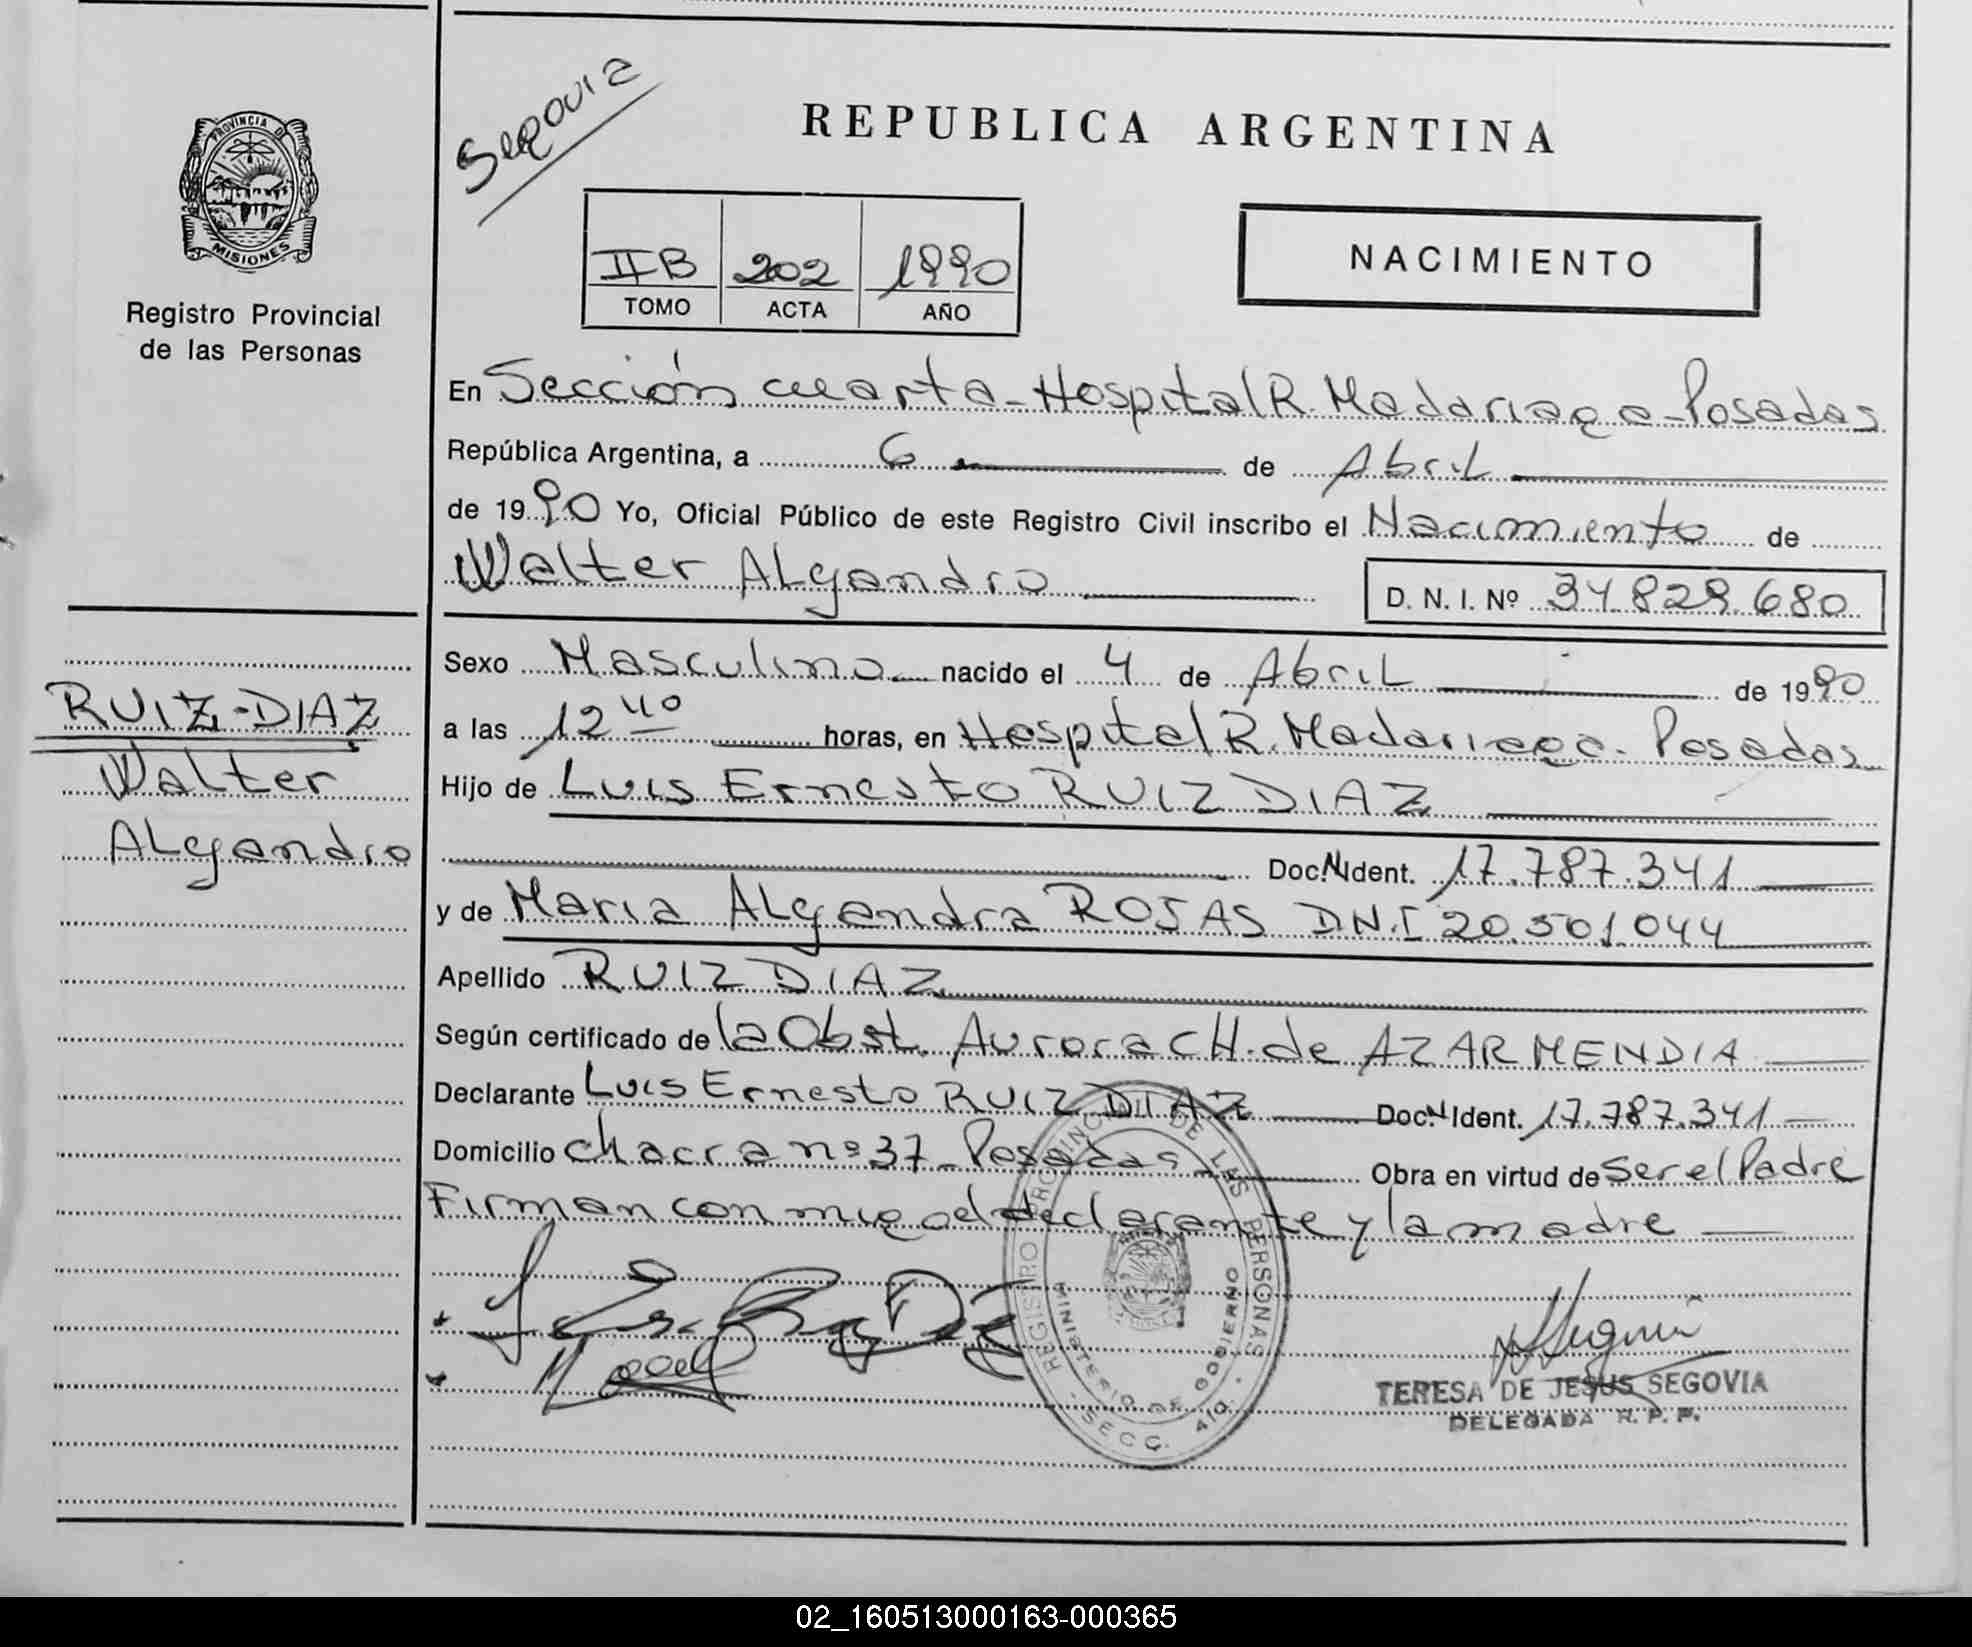 Segovia
REPUBLICA ARGENTINA
PROVINCIA D
MISIONES
Registro Provincial
de las Personas
IIB 202 1990
TOMO ACTA AÑO
NACIMIENTO
En Sección cuarta - Hospital R. Madariaga - Posadas
República Argentina, a 6 de Abril
de 1990 Yo, Oficial Público de este Registro Civil inscribo el Nacimiento de
Walter Alejandro D. N. I. Nº 34.829.680
Sexo Masculino nacido el 4 de Abril de 1990
RUIZ-DIAZ
Walter
Alejandro
a las 12 40 horas, en Hospital R. Madariaga - Posadas
Hijo de Luis Ernesto RUIZ DIAZ
Doc. N. Ident. 17.787.341
y de Maria Alejandra ROJAS D.N.I 20.501.044
Apellido RUIZ DIAZ
Según certificado de la Obst. Aurora CH. de AZARMENDIA
Declarante Luis Ernesto RUIZ DIAZ Doc. N. Ident. 17.787.341
Domicilio chacra nº 37 - Posadas Obra en virtud de ser el Padre
Firman con migo el declarante y la madre
REGISTRO PROVINCIAL DE LAS PERSONAS
MINISTERIO DE GOBIERNO
- SECC. 4ta. -
TERESA DE JESUS SEGOVIA
DELEGADA R. P. P.
02_160513000163-000365